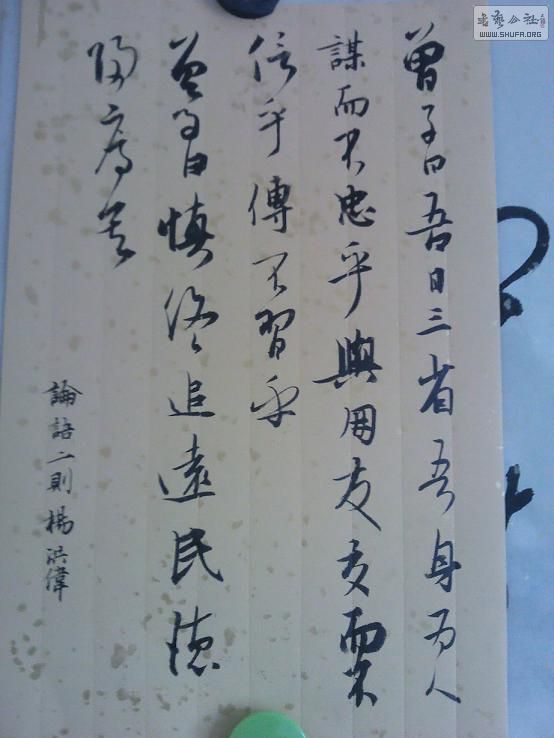 書藝公社
WWW.SHUFA.ORG
曾子曰吾日三省吾身为人
謀而不忠乎與朋友交而不
信乎傳不習乎
曾子曰慎终追遠民德
歸厚矣
論語二則楊洪偉